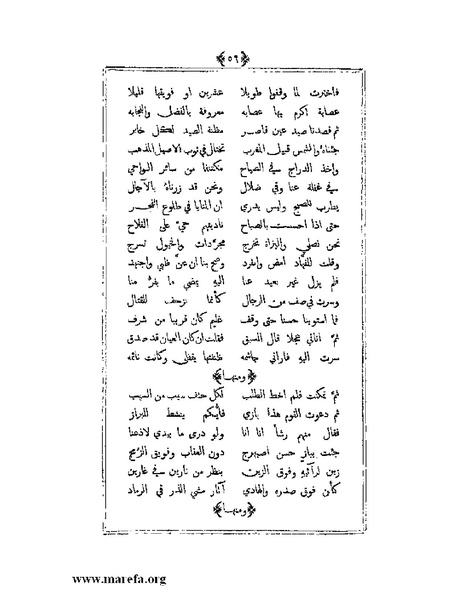 ﴿٥٦﴾
فاخترت لما وقفوا طويلا عشرين او فويقها قليلا
عصابة اكرم بها عصابه معروفة بالفضل والنجابه
ثم قصدنا صيد عين قاصر مظنة الصيد لكل خابر
جئناه والشمس قبيل المغرب تختال في ثوب الاصيل المذهب
واخذ الدراج في الصياح مكتنفا من سائر النواحي
في غفلة عنا وفي ضلال ونحن قد زرناه بالآجال
يطرب للصبح وليس يدري ان المنايا في طلوع الفجر
حتى اذا احسست بالصباح ناديتهم حي على الفلاح
نحن نصلي والبزاة تخرج مجردات والخيول تسرج
وقلت للفهاد امض وانفرد وصح بنا ان عن ظبي واجتهد
فلم يزل غير بعيد عنا اليه يمضي ما يفر منا
وسرت في صف من الرجال كأنما نزحف للقتال
فما استوينا حسنا حتى وقف غليم كان قريبا من شرف
ثم اتاني عجلا قال السبق فقلت ان كان العيان قد صدق
سرت اليه فاراني جاثمه ظننتها يقظى وكانت نائمه
﴿ومنها﴾
ثم تمكنت فلم اخط الطلب لكل حتف سبب من السبب
ثم دعوت القوم هذا بازي فأيكم ينشط للبراز
فقال منهم رشأ انا انا ولو درى ما بيدي لاذعنا
جئت بباز حسن اصبهرج دون العقاب وفويق الزمج
زين لرائيه وفوق الزين ينظر من نارين في غارين
كأن فوق صدره والهادي آثار مشي الذر في الرماد
﴿ومنها﴾
www.marefa.org